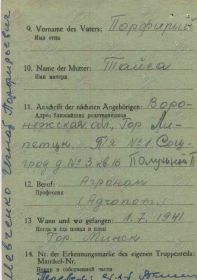 9. Vorname des Vaters: Порфирий
Имя отца
10. Name der Mutter: Таиса
Имя матери
11. Anschrift der nächsten Angehörigen: Воро-
Адрес ближайших родственников
нежская обл, Гор Ли-
петцк. №1 Соц-
город д. №3 кв 16
12. Beruf: Агроном
Профессия
13 Wann und wo gefangen: 1.7.1941
Когда и где попал в плен
Гор Минск
14. Nr. der Erkennungsmarke des eigenen Truppenteils:
Matrikel-Nr.
Шевченко Игнат Порфирьевич